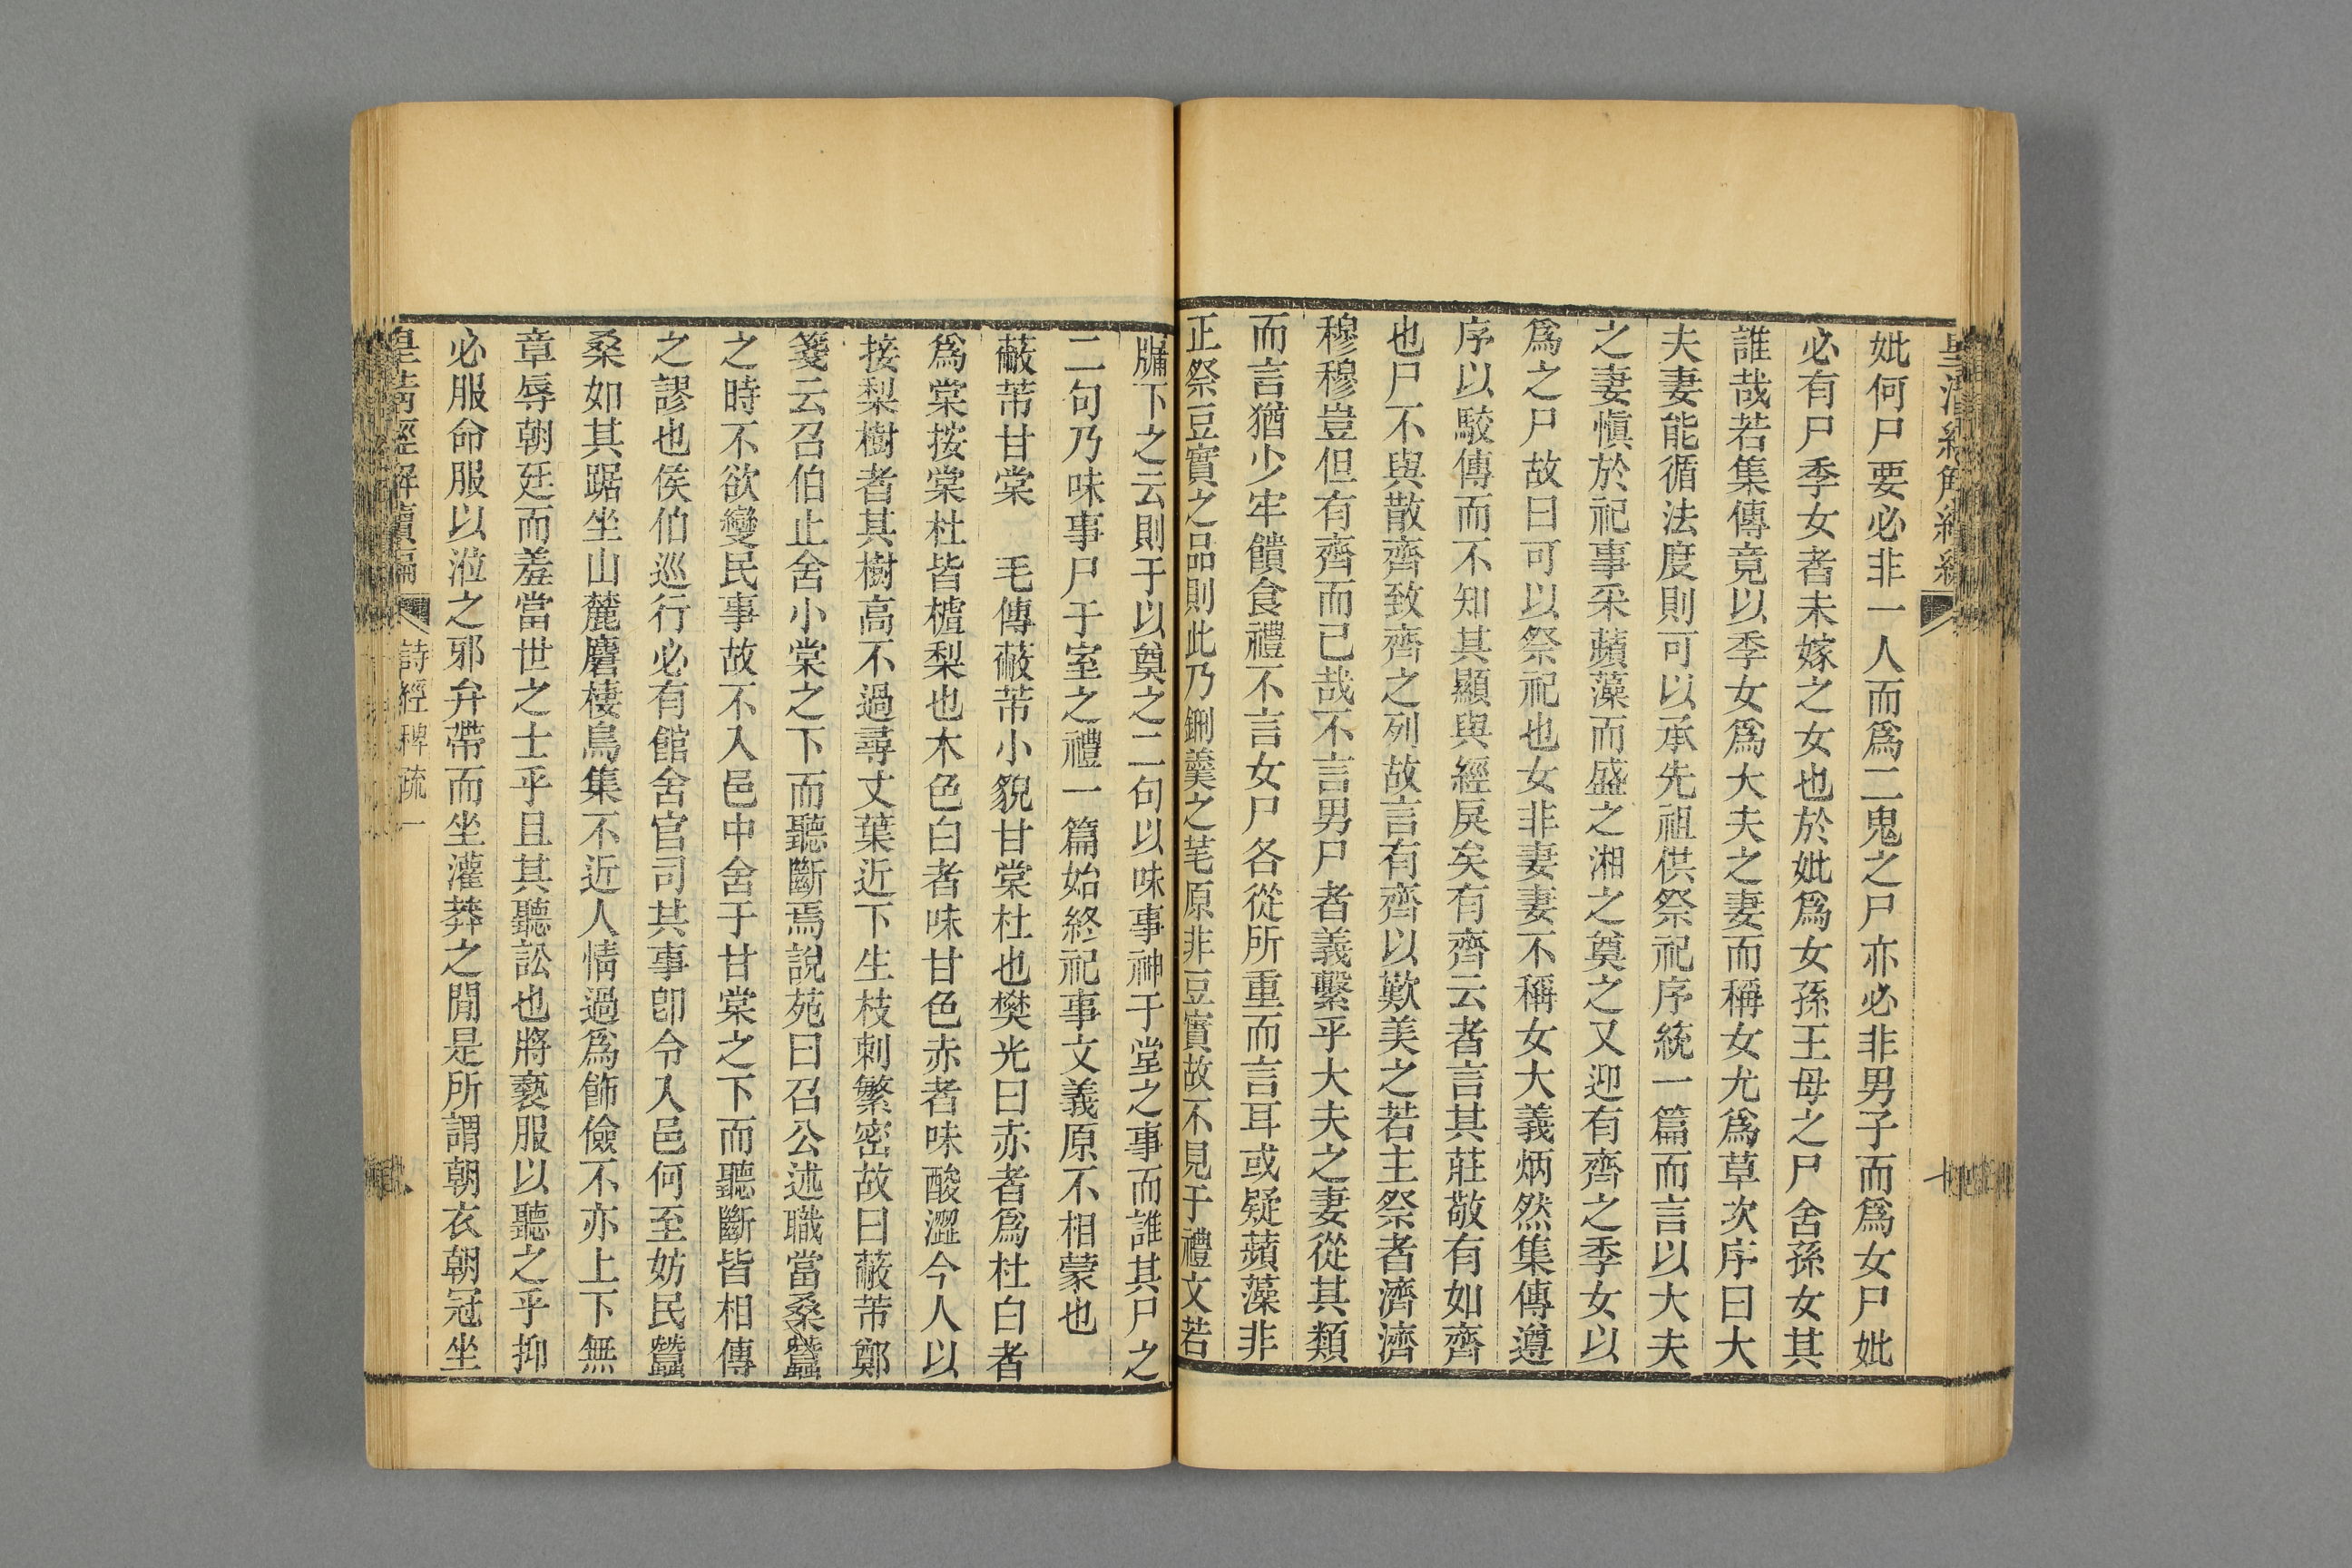 妣何尸要必非一人而爲二鬼之尸亦必非男子而爲女尸妣
必有尸季女者未嫁之女也於妣爲女孫王母之尸舍孫女其
誰哉若集傳竟以季女爲大夫之妻而稱女尤爲草次序曰大
夫妻能循法度則可以承先祖供祭祀序統一篇而言以大夫
之妻愼於祀事采蘋藻而盛之湘之奠之又迎有齊之季女以
爲之尸故曰可以祭祀也女非妻妻不稱女大義炳然集傳遵
序以駮傳而不知其顯與經戾矣有齊云者言其莊敬有如齊
也尸不與散齊致齊之列故言有齊以歎美之若主祭者濟濟
穆穆豈但有齊而已哉不言男尸者義繫乎大夫之妻從其類
而言猶少牢饋食禮不言女尸各從所重而言耳或疑蘋藻非
正祭豆實之品則此乃鉶羹之芼原非豆實故不見于禮文若
牖下之云則于以奠之二句以味事神于堂之事而誰其尸之
二句乃味事尸于室之禮一篇始終祀事文義原不相蒙也
蔽芾甘棠　毛傳蔽芾小貌甘棠杜也樊光曰赤者爲杜白者
爲棠按棠杜皆樝梨也木色白者味甘色赤者味酸澀今人以
接梨樹者其樹高不過尋丈葉近下生枝刺繁密故曰蔽芾鄭
箋云召伯止舍小棠之下而聽斷焉說苑曰召公述職當桑蠶
之時不欲變民事故不入邑中舍于甘棠之下而聽斷皆相傳
之謬也侯伯巡行必有館舍官司其事卽令入邑何至妨民蠶
桑如其踞坐山麓麏棲鳥集不近人情過爲飾儉不亦上下無
章辱朝廷而羞當世之士乎且其聽訟也將褻服以聽之乎抑
必服命服以涖之邪弁帶而坐灌莽之閒是所謂朝衣朝冠坐
皇淸經解續編　詩經稗疏一